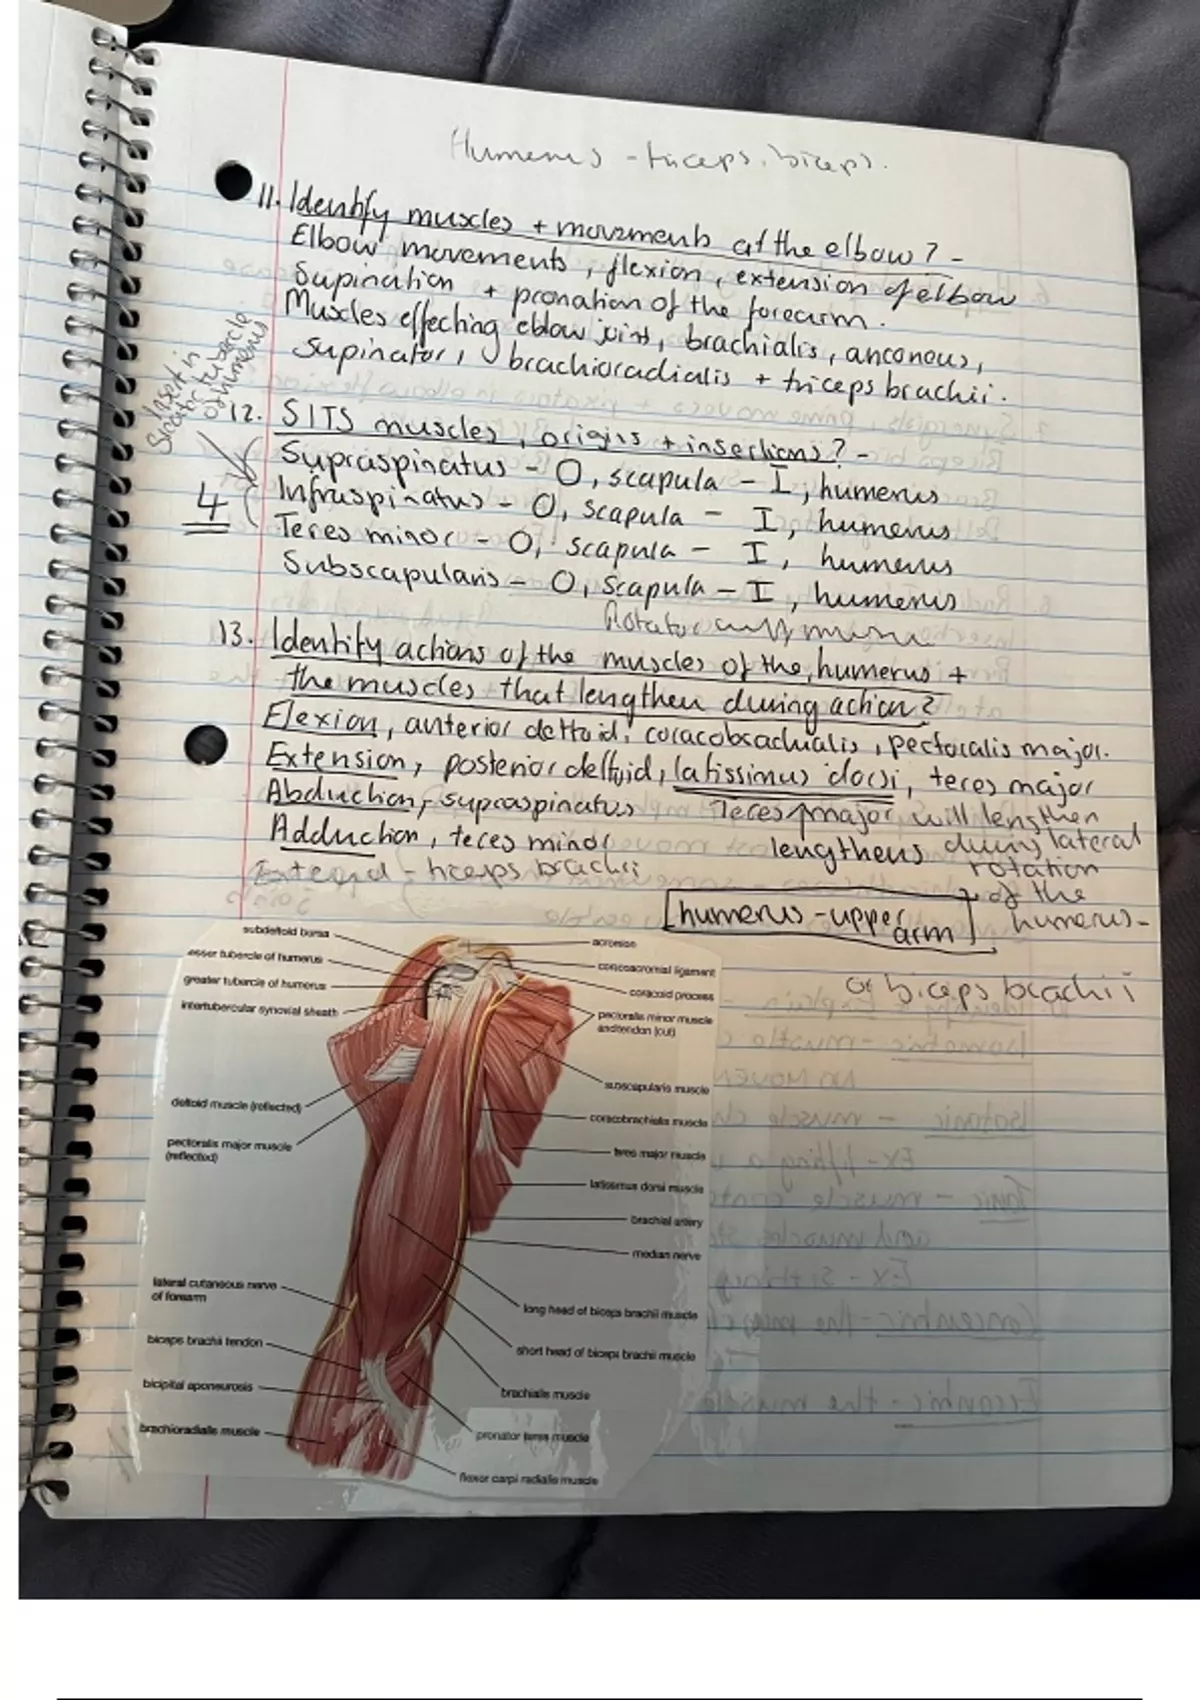 Humerus - triceps, biceps.
11. Identify muscles + movements at the elbow? -
Elbow movements, flexion, extension of elbow
Supination + pronation of the forearm.
Muscles effecting eblow joint, brachialis, anconous,
supinator, brachioradialis + triceps brachii.
Insert in
tubercle
of humerus
12. SITS muscles, origins + insertions? -
Supraspinatus - O, scapula - I, humerus
4
Infraspinatus - O, scapula - I, humerus
Teres minor - O, scapula - I, humerus
Subscapularis - O, scapula - I, humerus
Rotator cuff
13. Identify actions of the muscles of the, humerus +
the muscles that lengthen during action?
Flexion, anterior deltoid, coracobrachialis, pectoralis major.
Extension, posterior deltoid, latissimus dorsi, teres major
Abduction, supraspinatus Teres major will lengthen
Adduction, teres minor lengthens during lateral
rotation
Extend - triceps brachii
of the
humerus -
humerus - upper
arm
or biceps brachii
subdeltoid bursa
acromion
lesser tubercle of humerus
coracoacromial ligament
greater tubercle of humerus
coracoid process
intertubercular synovial sheath
pectoralis minor muscle
and tendon (cut)
subscapularis muscle
deltoid muscle (reflected)
coracobrachialis muscle
pectoralis major muscle
(reflected)
teres major muscle
latissimus dorsi muscle
brachial artery
median nerve
lateral cutaneous nerve
of forearm
long head of biceps brachii muscle
biceps brachii tendon
short head of biceps brachii muscle
bicipital aponeurosis
brachialis muscle
brachioradialis muscle
pronator teres muscle
flexor carpi radialis muscle